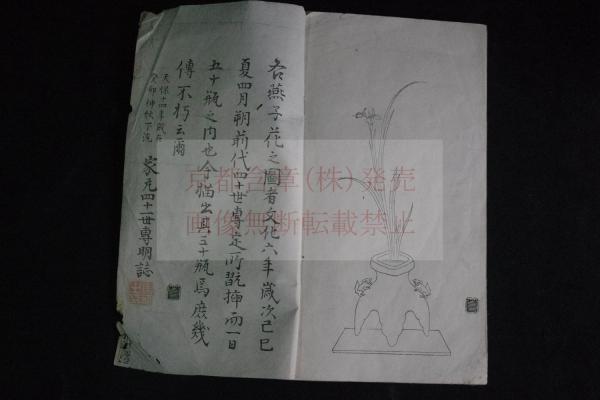 右燕子花之圖者文化六年歳次己巳
夏四月朔前代四十世專定所㽃挿而一日
五十瓶之内也今猶出其三十瓶焉庶幾
傳不朽云爾
天保十四年歳在
癸卯仲秋下浣
家元四十一世專明誌
京都含章(株)発売
画像無断転載禁止